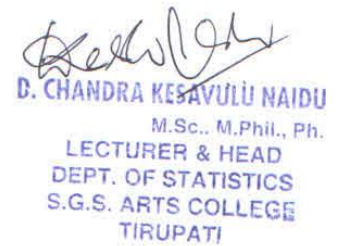 D. CHANDRA KESAVULU NAIDU
M.Sc., M.Phil., Ph.
LECTURER & HEAD
DEPT. OF STATISTICS
S.G.S. ARTS COLLEGE
TIRUPATI